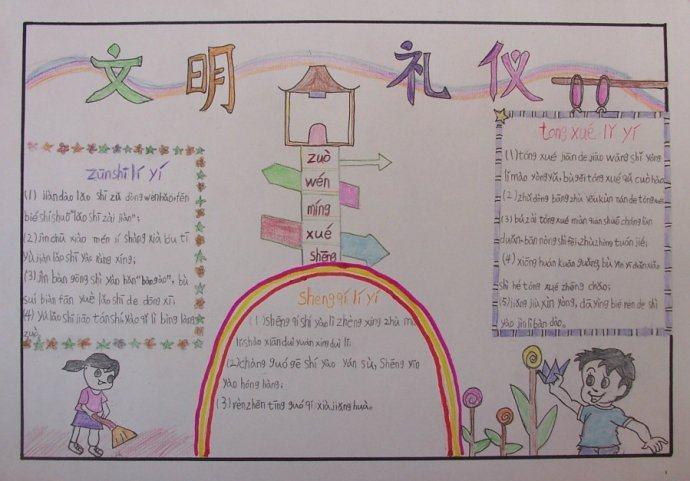 文明礼仪
zūnshī lǐ yí
(1) jiàn dào lǎo shī zhǔ dòng wèn hǎo, fēn
bié shí shuō "lǎo shī zài jiàn";
(2) jìn chū xiào mén jí shàng xià lóu tī
yù jiàn lǎo shī yào ràng xíng;
(3) jìn bàn gōng shì yào hǎn "bàogào", bù
suí biàn fān yuè lǎo shī de dōng xī;
(4) yǔ lǎo shī jiāo tán shí yào qǐ lì bìng ràng
zuò
zuò
wén
míng
xué
shēng
shēng qí lǐ yí
(1) shēng qí shí yào lì zhèng xíng zhù mù
lǐ shào xiān duì yuán xíng duì lǐ;
(2) chàng guó gē shí yào yán sù, shēng yīn
yào hóng liàng;
(3) rèn zhēn tīng guó qí xià jiǎng huà.
tóng xué lǐ yí
(1) tóng xué jiān de jiāo wǎng shí yòng
lǐ mào yòng yǔ, bù gěi tóng xué qǔ
(2) zhǔ dòng bāng zhù yǒu kùn nán de tóng
(3) bù zài tóng xué miàn qián shuō cháng lùn
duǎn, bàn nòng shì fēi zhù zhòng tuán jié;
(4) xiōng huái kuān guǎng, bù yīn yì diǎn xiǎo
shì hé tóng xué zhēng chǎo;
(5) jiǎng xìn yòng, dā yìng bié rén de shì
yào jìn lì bàn dào.